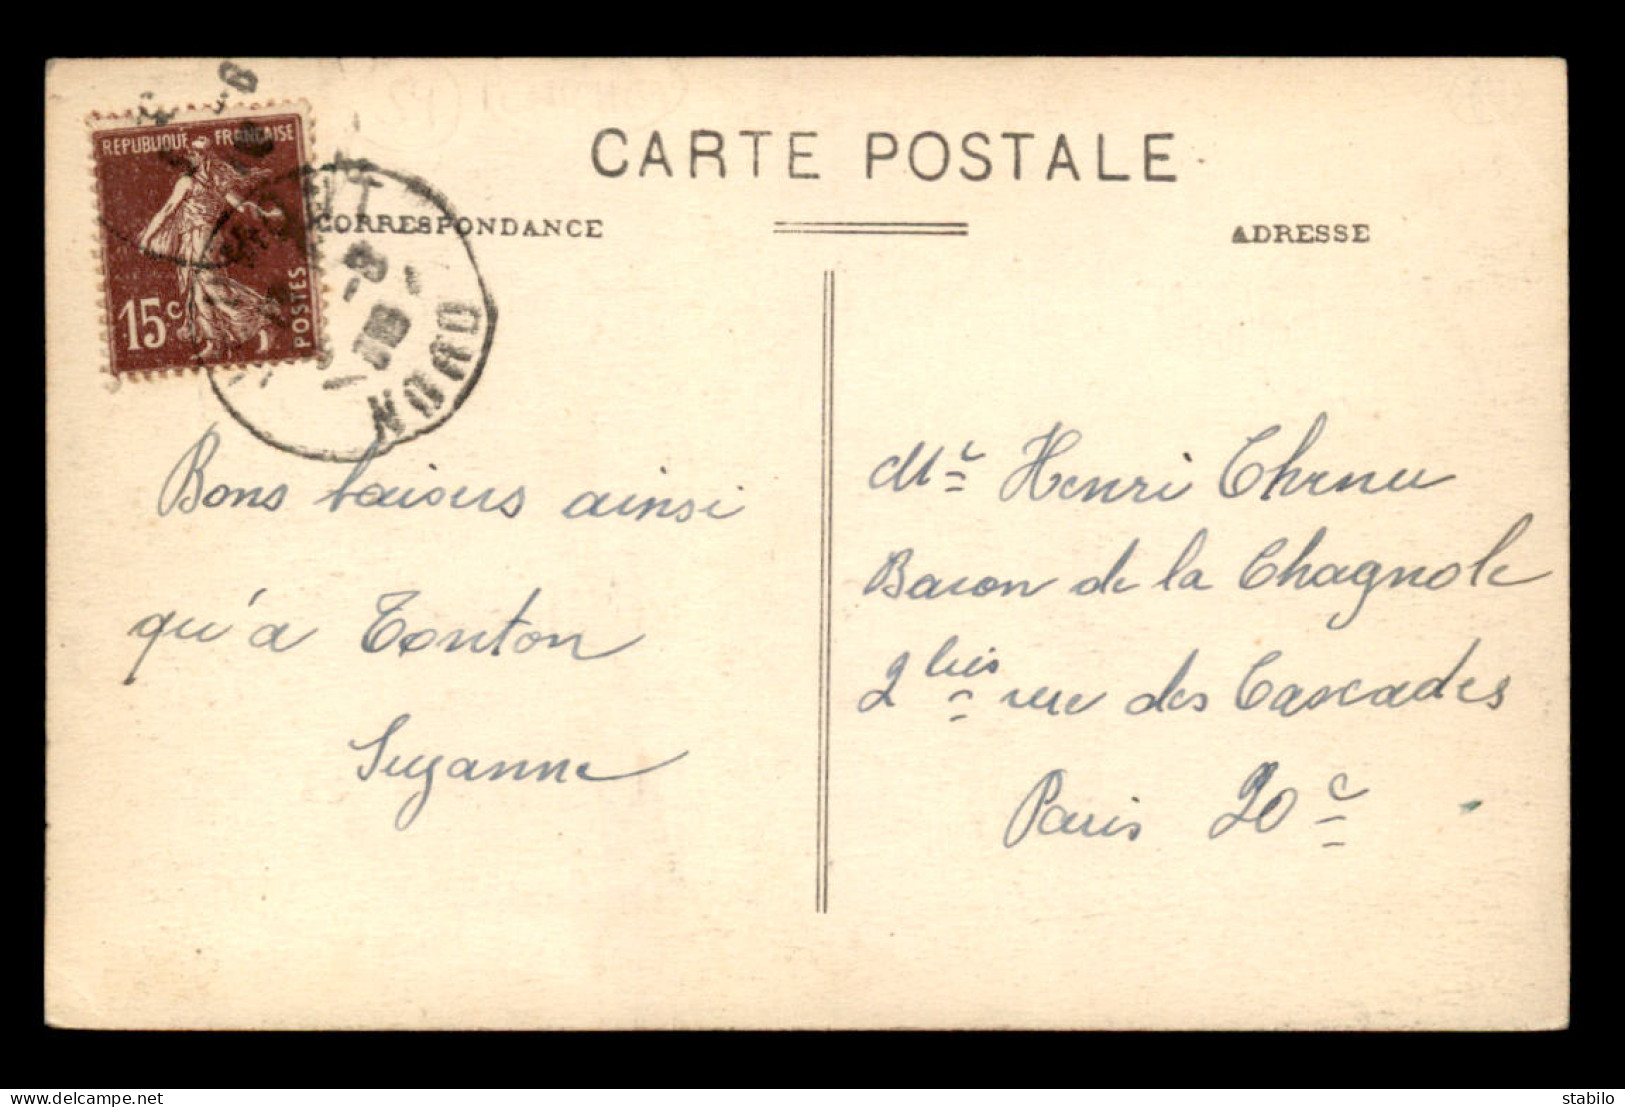 CARTE POSTALE
CORRESPONDANCE
ADRESSE
REPUBLIQUE FRANCAISE
15c
POSTES
NORD
Bons baisers ainsi
qu'à Tonton
Suzanne
Mr Henri
Baron de la Chagnole
2 bis rue des Cascades
Paris 20e
stabilo